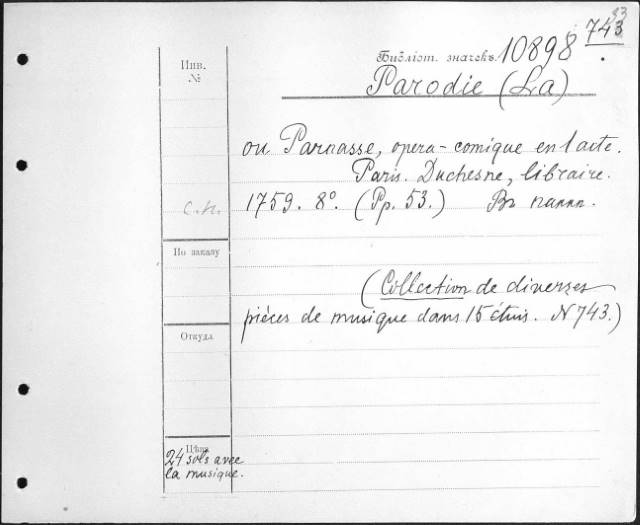 33
743
Инв.
№
Библіот. значекъ 10898
Parodie (La)
ou Parnasse, opera-comique en 1 acte.
Paris. Duchesne, libraire.
1759. 8°. (Pp. 53.) Въ папк.
По заказу
(Collection de diverses
pièces de musique dans 15 étuis. N 743.)
Откуда
Цѣна
24 sols avec
la musique.